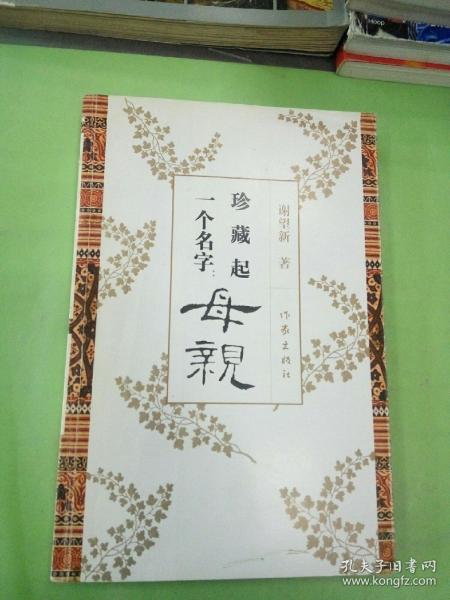 珍藏起
一个名字：
母親
谢望新 著
作家出版社
Hoop
孔夫子旧书网
www.kongfz.com